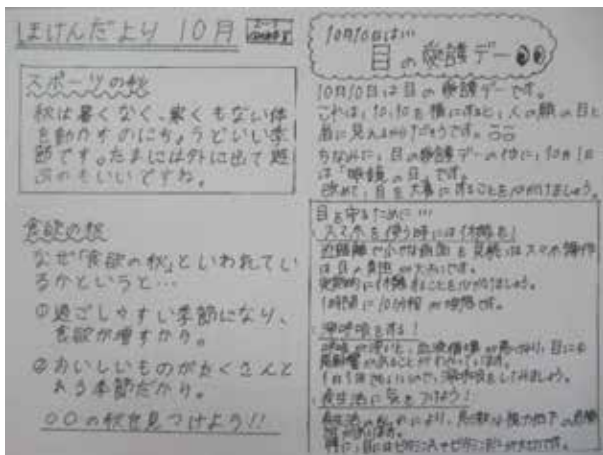 ほけんだより 10月
スポーツの秋
秋は暑くなく、寒くもない体
を動かすのにちょうどいい季
節です。たまには外に出て遊
ぶのもいいですね。
食欲の秋
なぜ「食欲の秋」といわれてい
るかというと…
①過ごしやすい季節になり、
食欲が増すから。
②おいしいものがたくさんと
れる季節だから。
〇〇の秋を見つけよう!!
10月10日は…
目の愛護デー
10月10日は目の愛護デーです。
これは、10.10を横にすると、人の顔の目と
眉に見えるからだそうです。
ちなみに、目の愛護デーの他に、10月1日
は「眼鏡の日」です。
改めて、目を大事にすることを心がけましょう。
目を守るために…
スマホを使う時には休憩を!
近距離で小さな画面を見続けるスマホ操作
は目の負担が大きいです。
定期的に休憩することを心がけましょう。
1時間に10分程が理想です。
深呼吸をする!
呼吸が浅いと、血液循環が悪くなり、目にも
悪影響があることがわかっています。
1日1回でもいいので、深呼吸をしてみましょう。
食生活に気をつけよう!
食生活の乱れにより、
特に、目にはビタミンAやビタミンBが大切です。